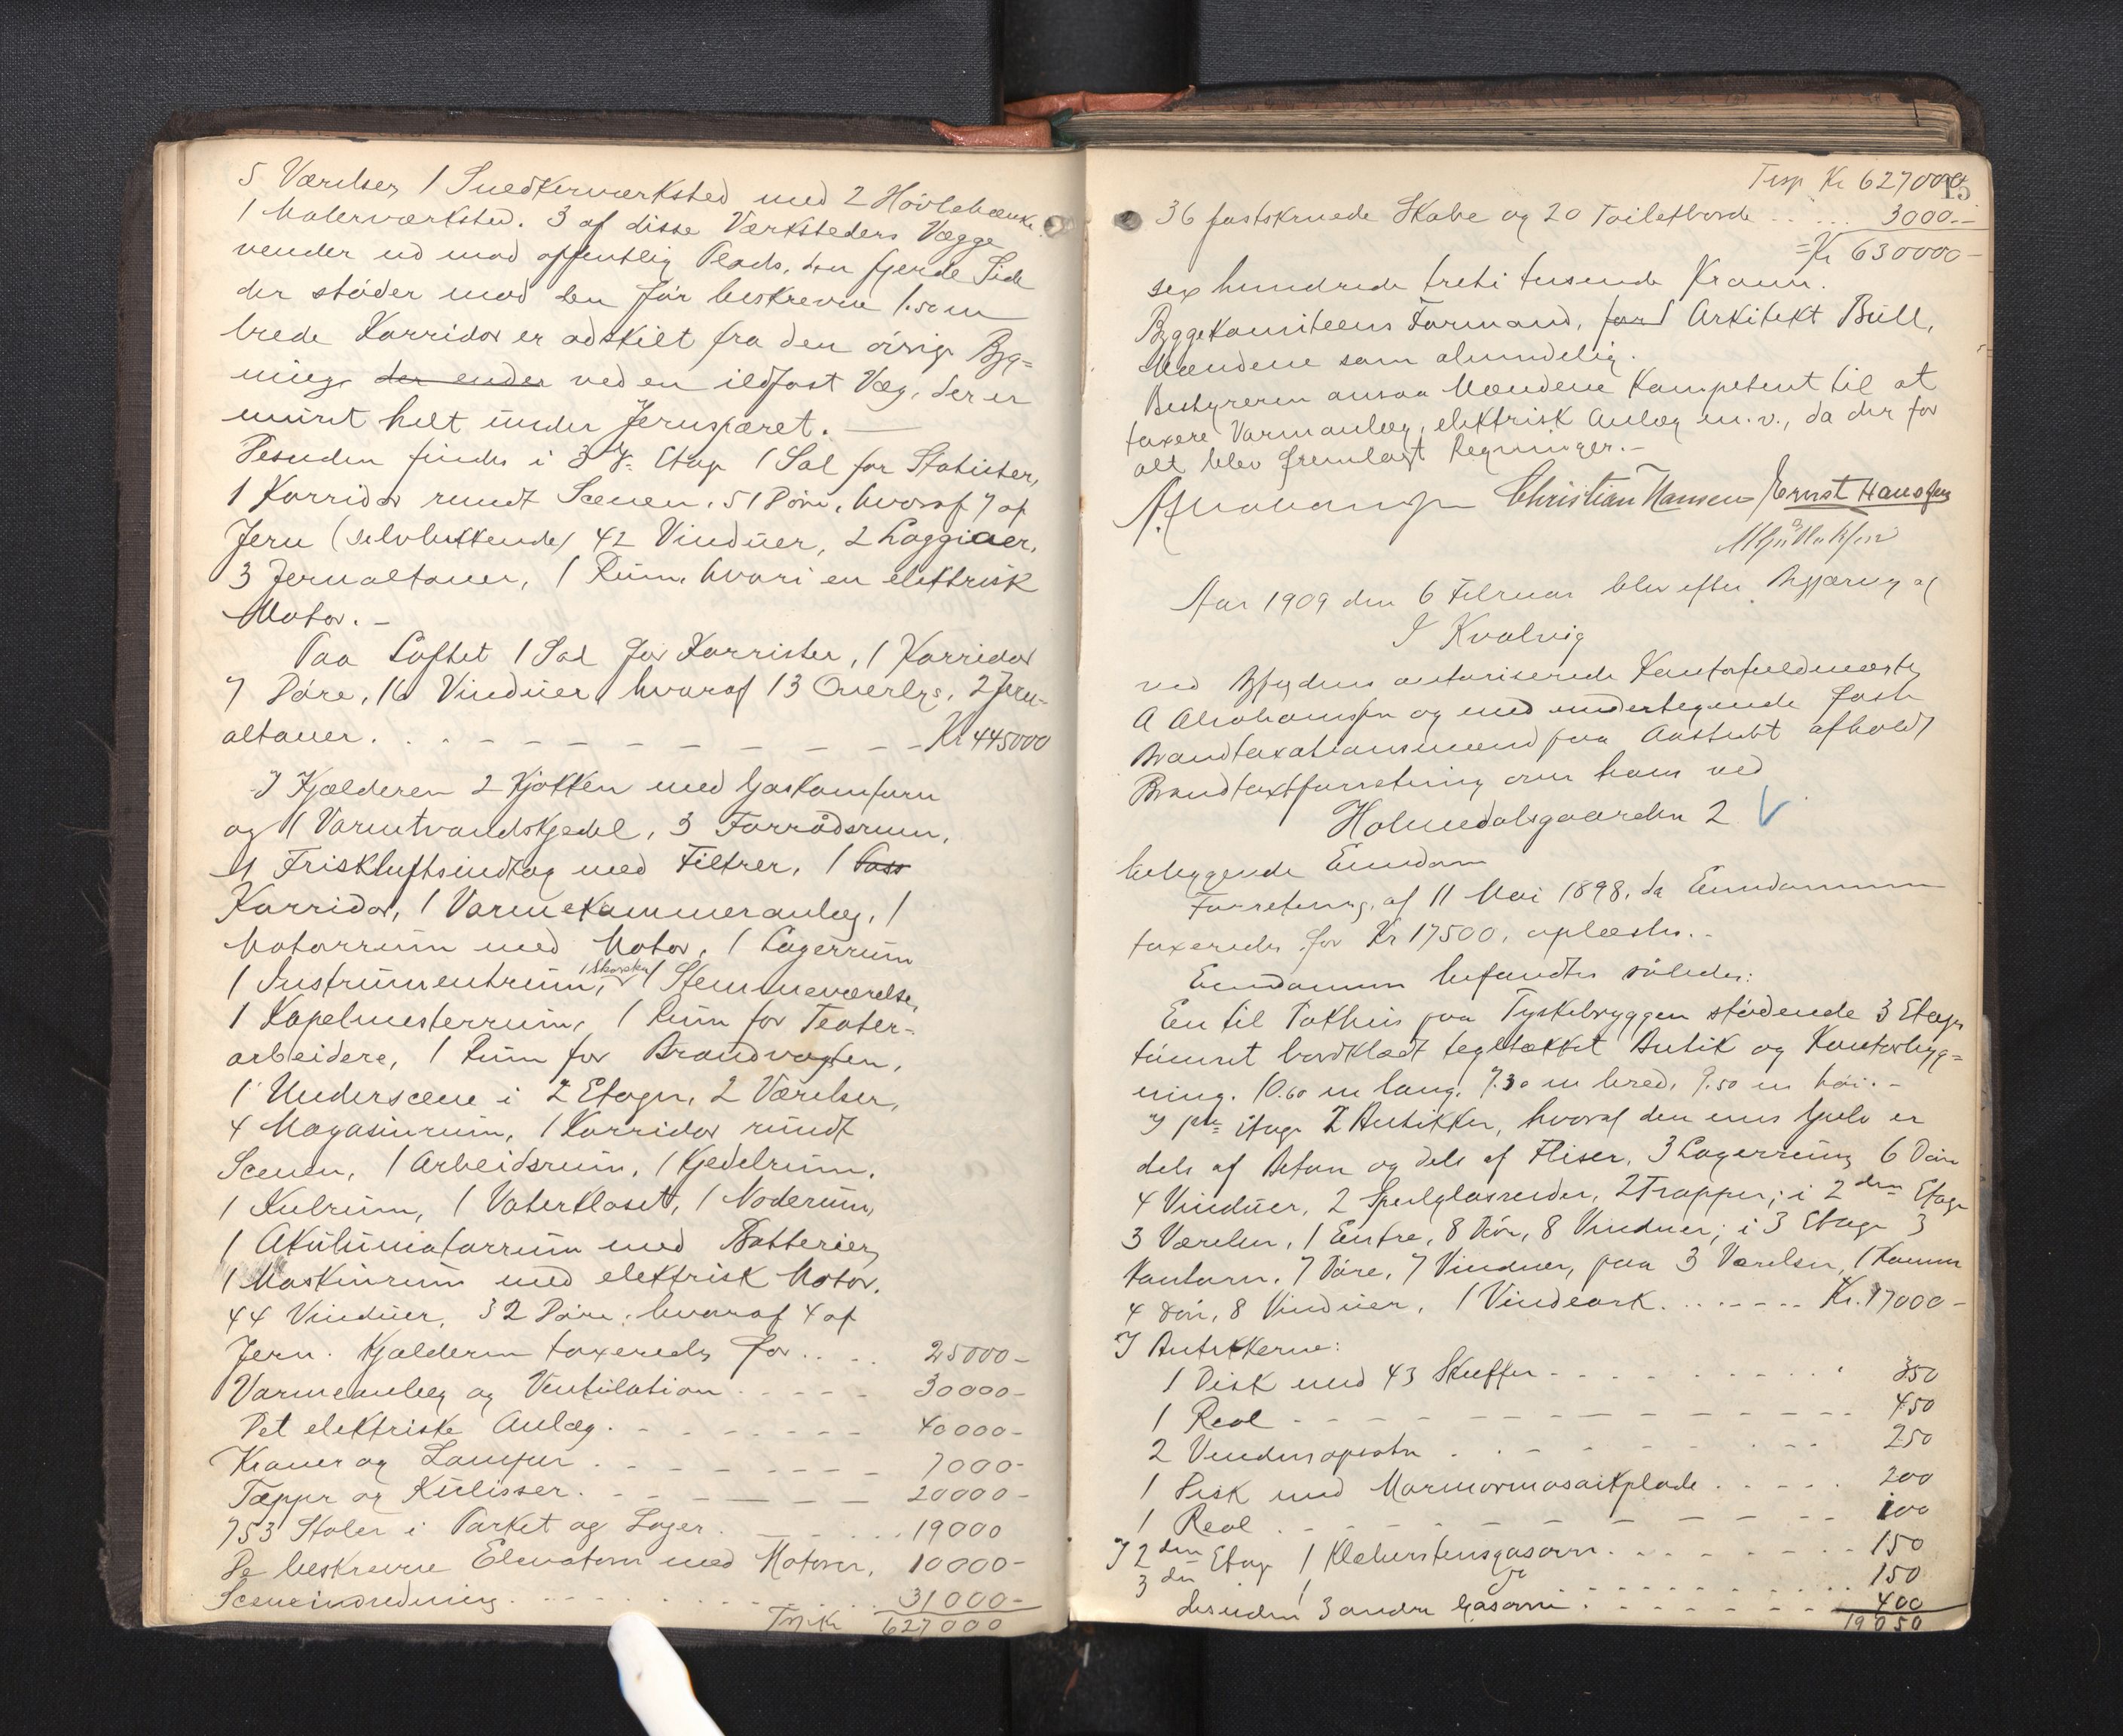 5 Værelser, 1 Snedkerværksted med 2 Høvlebænke.
1 Malerværksted. 3 af disse Værksteders Vægge
vender ud mod offentlig Plads, den fjerde Side
der støder mod den før beskrevne 1.50 m
brede Korridor er adskilt fra den øvrige Byg=
ning, der ender ved en ildfast Væg, der er
muret helt under Jernspæret.
Desuden findes i 3die Etage 1 Sal for Statister,
1 Korridor rundt Scenen, 51 Døre, hvoraf 7 af
Jern (selvlukkende) 42 Vinduer, 2 Loggiaer,
3 Jernaltaner, 1 Rum, hvori en elektrisk
Motor. -
Paa Loftet 1 Sal for Korrister, 1 Korridor
7 Døre, 16 Vinduer, hvoraf 13 Overlys, 2 Jern-
altaner. Kr 445000
I Kjælderen 2 Kjøkken med Gaskomfurn
og 1 Varmtvandskjedel, 3 Forrådsrum,
1 Friskluftsindtag med Filtrer, 1 Pass
Korridor, 1 Varmekammeranlæg, 1
Motorrum med Motor, 1 Lagerrum
1 Instrumentrum, 1 Stemmeværelse,
1 Kapelmesterrum, 1 Rum for Teater-
arbeidere, 1 Rum for Brandvagten,
1 Underscene i 2 Etager, 2 Værelser,
4 Magasinrum, 1 Korridor rundt
Scenen, 1 Arbeidsrum, 1 Kjedelrum,
1 Kulrum, 1 Vaterkloset, 1 Noderum,
1 Akumulatorrum med Batterier,
1 Maskinrum med elektrisk Motor.
44 Vinduer, 32 Døre, hvoraf 4 af
Jern. Kjælderen taxeredes for 25000-
Varmeanlæg og Ventilation 30000-
Det elektriske Anlæg. 40000-
Kroner og Lamper 7000-
Tæpper og Kulisser. 20000-
753 Stoler i Parket og Loger 19000
De beskrevne Elevatorer med Motorer, 10000-
Sceneindredning 31000-
627000
15
Kr 627000
36 fastskruede Skabe og 20 Toiletborde 3000.-
=Kr 630000-
sex hundrede treti tusende Kroner.
Byggekomiteens Formand, Arkitekt Bull,
Mændene som almindelig.
Bestyreren ansaa Mændene kompetent til at
taxere Varmanlæg, elektrisk Anlæg m.v., da der for
alt blev fremlagt Regninger.-
A Abrahamsen Christian Hansen Ernst Hansen
Aar 1909 den 6 Februar blev efter Begjæring af
I Kvalvig
ved Byfogdens autoriserede Kontorfuldmægtig
A Abrahamsen og med undertegnede faste
Brandtaxationsmænd paa Aastedet afholdt
Brandtaxtforretning over hans ved
Holmedalsgaarden 2
beliggende Eiendom
Forretning af 11 Mai 1898, da Eiendommen
taxeredes for Kr 17500, oplæstes.-
Eiendommen befandtes således:
En til Pakhus paa Tyskebryggen stødende 3 Etages
tømret bordklædt tegltækket Butik og Kontorbyg=
ning. 10.60 m lang, 7.30 m bred, 9.50 m høi.-
I 1ste Etage 2 Butikker, hvoraf den enes Gulv er
dels af Beton og dels af Fliser, 3 Lagerrum, 6 Døre
4 Vinduer, 2 Speilglasruder, 2 Trapper; i 2den Etage
3 Værelser, 1 Entre, 8 Døre, 8 Vinduer; i 3 Etage 3
Kontorer, 7 Døre, 7 Vinduer, paa 3 Værelser, 1 Kammer
4 Døre, 8 Vinduer, 1 Vindeark. Kr. 17000-
I Butikkerne:
1 Disk med 43 Skuffer 350
1 Reol 450
2 Vinduesopsatser 250
1 Disk med Marmormosaikplade 200
1 Reol 100
I 2den Etage 1 Klæberstensgasovn 150
3die 1 150
desuden 3 andre Gasovne 400
19050